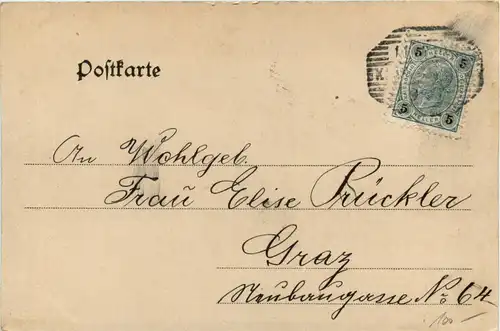 Postkarte
5 5
5 5
An Wohlgeb.
Frau Elise Prückler
Graz
Neubaugasse No 64
100 –